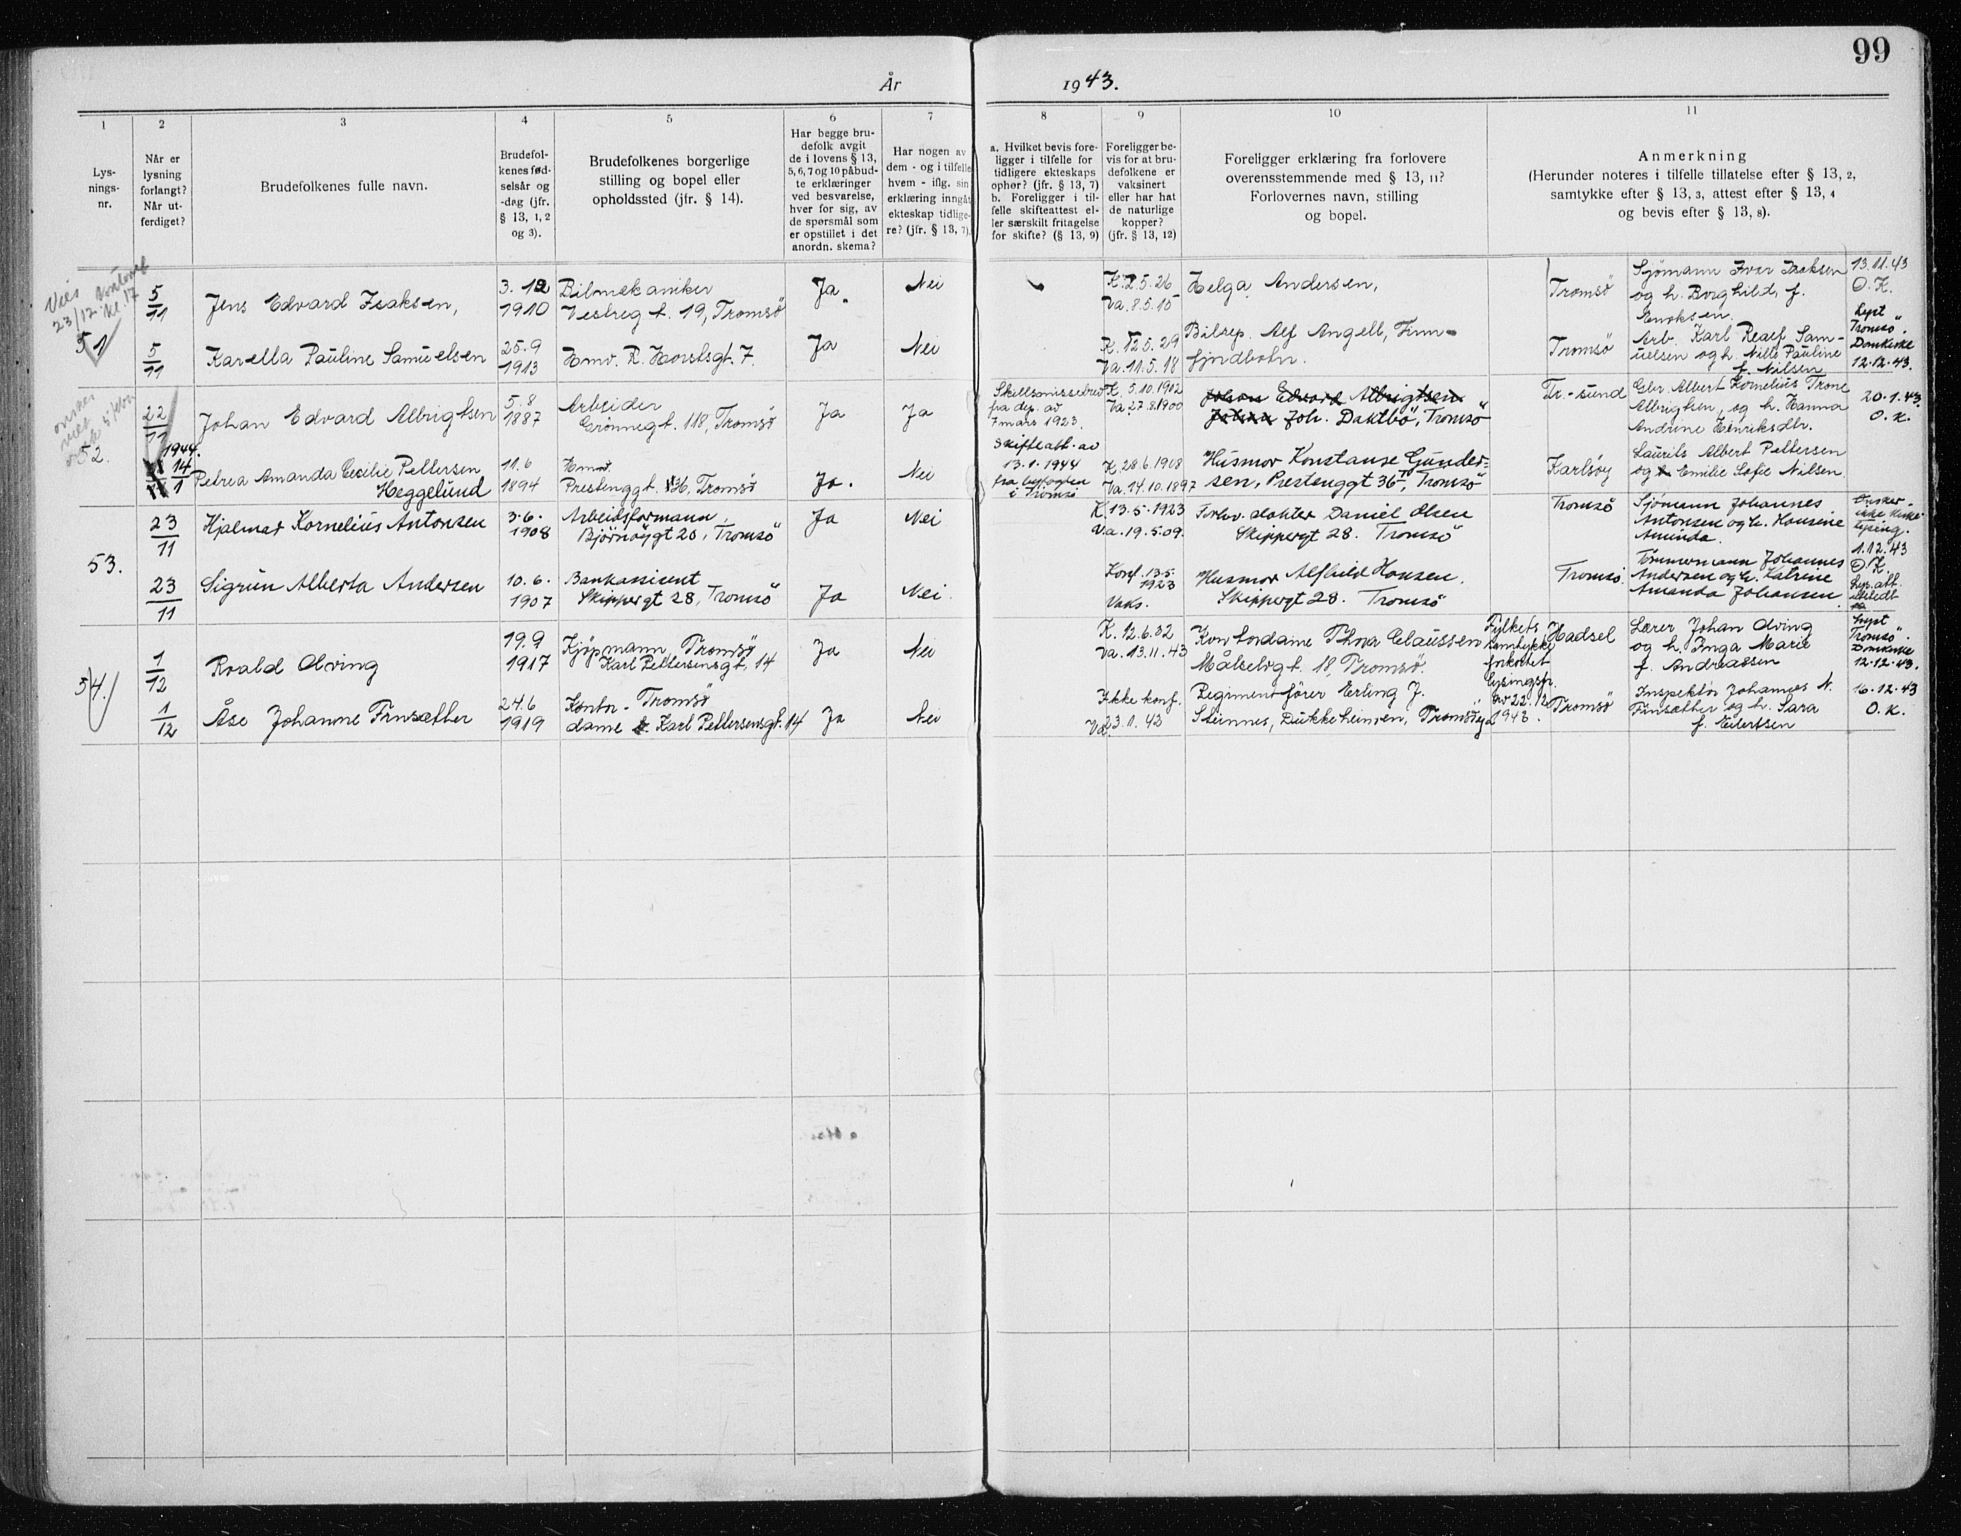 99
År 1943.
1 2 3 4 5 6 7 8 9 10 11
Lys-
nings-
nr.
Når er
lysning
forlangt?
Når ut-
ferdiget?
Brudefolkenes fulle navn.
Brudefol-
kenes fød-
selsår og
-dag (jfr.
§ 13, 1, 2
og 3).
Brudefolkenes borgerlige
stilling og bopel eller
opholdssted (jfr. § 14).
Har begge bru-
defolk avgit
de i lovens § 13,
5, 6, 7 og 10 påbud-
te erklæringer
ved besvarelse,
hver for sig, av
de spørsmål som
er opstillet i det
anordn. skema?
Har nogen av
dem - og i tilfelle
hvem - iflg. sin
erklæring inngåt
ekteskap tidlige-
re? (jfr. § 13, 7).
a. Hvilket bevis fore-
ligger i tilfelle for
tidligere ekteskaps
ophør? (jfr. § 13, 7)
b. Foreligger i til-
felle skifteattest el-
ler særskilt fritagelse
for skifte? (§ 13, 9)
Foreligger be-
vis for at bru-
defolkene er
vaksinert
eller har hat
de naturlige
kopper?
(jfr. § 13, 12)
Foreligger erklæring fra forlovere
overensstemmende med § 13, 11?
Forlovernes navn, stilling
og bopel.
Anmerkning
(Herunder noteres i tilfelle tillatelse efter § 13, 2,
samtykke efter § 13, 3, attest efter § 13, 4
og bevis efter § 13, 8).
Vies
23/12 kl. 17
51
5/11
Jens Edvard Isaksen,
3.12
1910
Bilmekaniker
Vestregt. 19, Tromsö
Ja
Nei
K. 2.5.26
Va. 8.5.15
Helga Andersen,
Tromsö
Sjömann Ivar Isaksen
og h. Borghild, f.
13.11.43
O.K.
5/11
Karella Pauline Samuelsen
25.9
1913
Hmv. R. Horstsgt. 7.
Ja
Nei
K. 12.5.29
Va. 11.5.18
Bilrep. Alf Angell, Finn-
fjordbotn.
Tromsö
Arb. Karl Sam-
uelsen og h. Nille Pauline
f. Nilsen
Lyst
Tromsö
Domkirke
12.12.43.
52.
22/11
Johan Edvard Albrigtsen
5.8
1887
Arbeider
Grönnegt. 118, Tromsö
Ja
Ja
Skilsmissedred
fra dep. av
7 mars 1923.
K. 5.10.1902
Va. 27.8.1900
Johan Edvard Albrigtsen
Johan Joh. Daktbö, Tromsö
Tr.-sund
Gbr. Albert Kornelius Trone
Albrigtsen, og h. Hanna
Andrine Henriksdtr.
20.1.43.
O.K.
1944.
14/1
Petrea Amanda Cecilie Pettersen
Heggelund
11.6
1894
Prestenggt. 36, Tromsö
Ja.
Nei
Skifteatt. av
13.1.1944
fra byfogden
i Tromsö
K. 28.6.1908
Va. 14.10.1897
Husmor Konstanse Gunder-
sen, Prestenggt 36 I, Tromsö
Karlsöy
Laurits Albert Pettersen
og Emilie Sofie Nilsen
53.
23/11
Hjalmar Kornelius Antonsen
3.6.
1908
Arbeidsformann,
Björnöygt 20, Tromsö
Ja
Nei
K. 13.5.1923
Va. 19.5.09.
Forhv. dokter Daniel Olsen
Skippergt 28. Tromsö
Tromsö
Sjömann Johannes
Antonsen og h. Hansine
Aminda.
Önsker
ikke kirke
lysing.
1.12.43
O.K.
23/11
Sigrun Alberta Andersen
10.6.
1907
Bankassisent
Skippergt 28, Tromsö
Ja
Nei.
Konf. 13.5.
1923
Vaks.
Husmor Alfhild Hansen.
Skippergt 28. Tromsö
Tromsö
Tömmermann Johannes
Andersen og h. Katrine
Amanda Johansen.
54.
1/12
Roald Aving
19.9
1917
Kjöpmann, Tromsö
Karl Pettersensgt. 14
Ja
Nei
K. 12.6.32
Va. 13.11.43
Kontordame Thora Claussen
Målselvgt. 18, Tromsö
Fylkets
samtykke
forkortet
lysingsfr.
av 22.12
1943.
Hadsel
Lærer Johan Aving
og h. Inga Marie
f. Andreassen
Lyst
Tromsö
Domkirke
12.12.43.
1/12
Åse Johanne Finsæther
24.6
1919
Kontor- Tromsö
dame Karl Pettersensgt. 14
Ja
Nei
Ikke konf.
Va. 23.1.43
Regimentsfører Erling J.
Steinnes, Dukkeheimen, Tromsöya
Tromsö
Inspektör Johannes N.
Finsæther og h. Sara
f. Eilertsen
16.12.43
O.K.